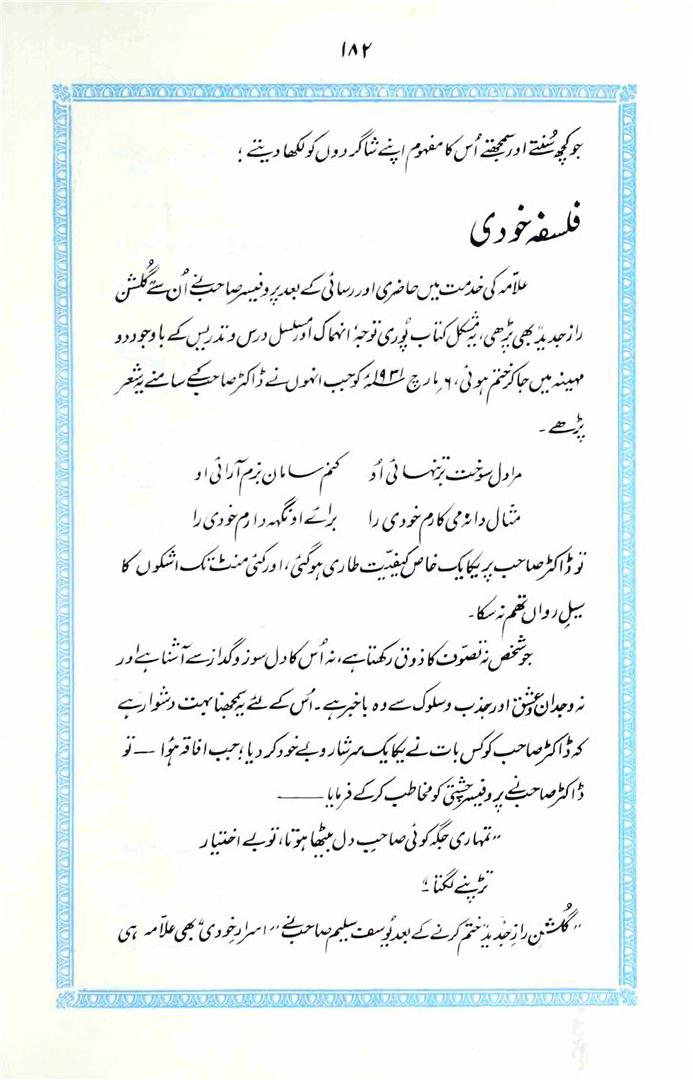 ۱۸۲
جو کچھ سُنتے اور سمجھتے اُس کا مفہوم اپنے شاگردوں کو لکھا دیتے ؛
فلسفہ خودی
علّامہ کی خدمت میں حاضری اور رسائی کے بعد پروفیسر صاحب نے اُن سے گلشن
راز جدید بھی پڑھی، یہ مشکل کتاب پُوری توجہ، انہماک اور مسلسل درس و تدریس کے باوجود دو
مہینہ میں جا کر ختم ہوئی، ۶ مارچ ۱۹۳۱ء کو جب انہوں نے ڈاکٹر صاحب کے سامنے یہ شعر
پڑھے ۔
مرا دل سوخت بر تنہائی اُو کنم سامان بزم آرائی او
مثال دانہ می کارم خودی را برائے او نگہدارم خودی را
تو ڈاکٹر صاحب پر یکایک خاص کیفیّت طاری ہو گئی، اور کئی منٹ تک اشکوں کا
سیلِ رواں تھم نہ سکا ۔
جو شخص نہ تصوّف کا ذوق رکھتا ہے، نہ اُس کا دل سوز و گداز سے آشنا ہے اور
نہ وجدان و عشق اور جذب و سلوک سے وہ باخبر ہے ۔ اُس کے لئے یہ سمجھنا بہت دشوار ہے
کہ ڈاکٹر صاحب کو کس بات نے یکایک سرشار و بے خود کر دیا ؛ جب افاقہ ہُوا — تو
ڈاکٹر صاحب نے پروفیسر چشتی کو مخاطب کر کے فرمایا ——
”تمہاری جگہ کوئی صاحبِ دل بیٹھا ہوتا، تو بے اختیار
تڑپنے لگتا“ ۔
”گلشن راز جدید“ ختم کرنے کے بعد یُوسف سلیم صاحب نے ”اسرارِ خودی“ بھی علّامہ ہی